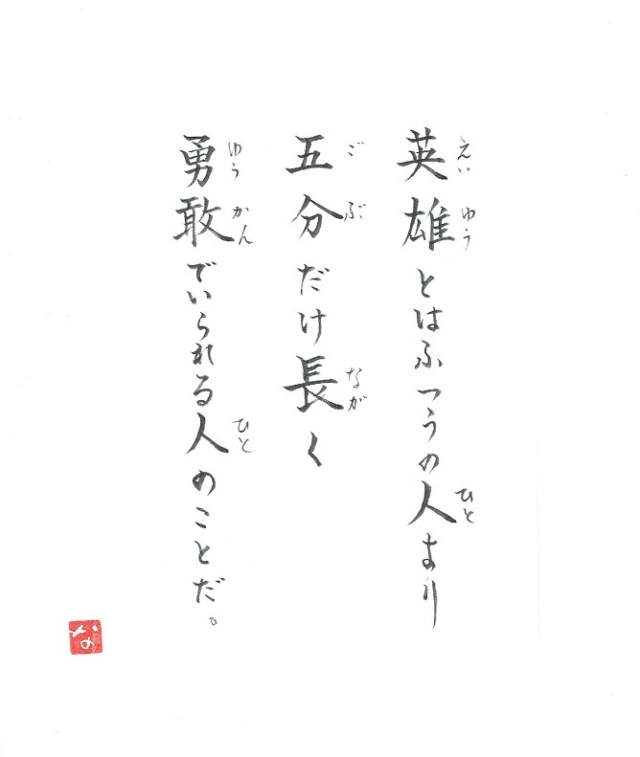 英雄とはふつうの人より
えいゆう
ひと
五分だけ長く
ごぶ
なが
勇敢でいられる人のことだ。
ゆうかん
ひと
な